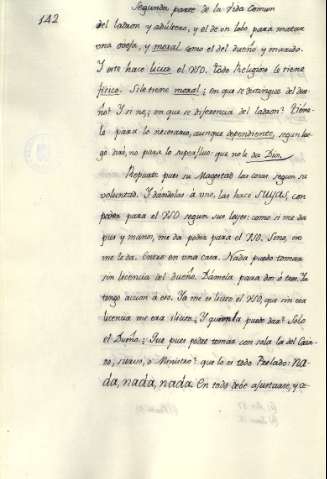 142
Segunda parte de la Vida Comun
del ladron y adultero, y el de un lobo para matar
una oveja, y moral como el del dueño y marido.
Y esto hace licito el USO. Todo Religioso le tiene
fisico. Si le tiene moral; en que se distingue del due-
ño? Y si no, en que se diferencia del ladron? Tiene-
le para lo necesario, aunque dependiente, segun lue-
go diré, no para lo superfluo: que no le da Dios.
Reparte pues su Magestad las cosas segun su
voluntad. Y dandolas á uno, las hace SUYAS, con
poder para el USO segun sus leyes: como si me da
pies y manos, me da poder para el USO. Si no, no
me le da. Entro en una casa. Nada puedo tomar
sin licencia del dueño. Dámela para dos ó tres. Ya
tengo accion á eso. Ya me es licito el USO, que sin esa
licencia me era ilicito. Y quien la puede dar? Solo
el Dueño. Que pues podré tomar con sola la del Cria-
do, siervo, o Ministro? que lo es todo Prelado: na-
da, nada, nada. En todo debe ajustarse, y a-